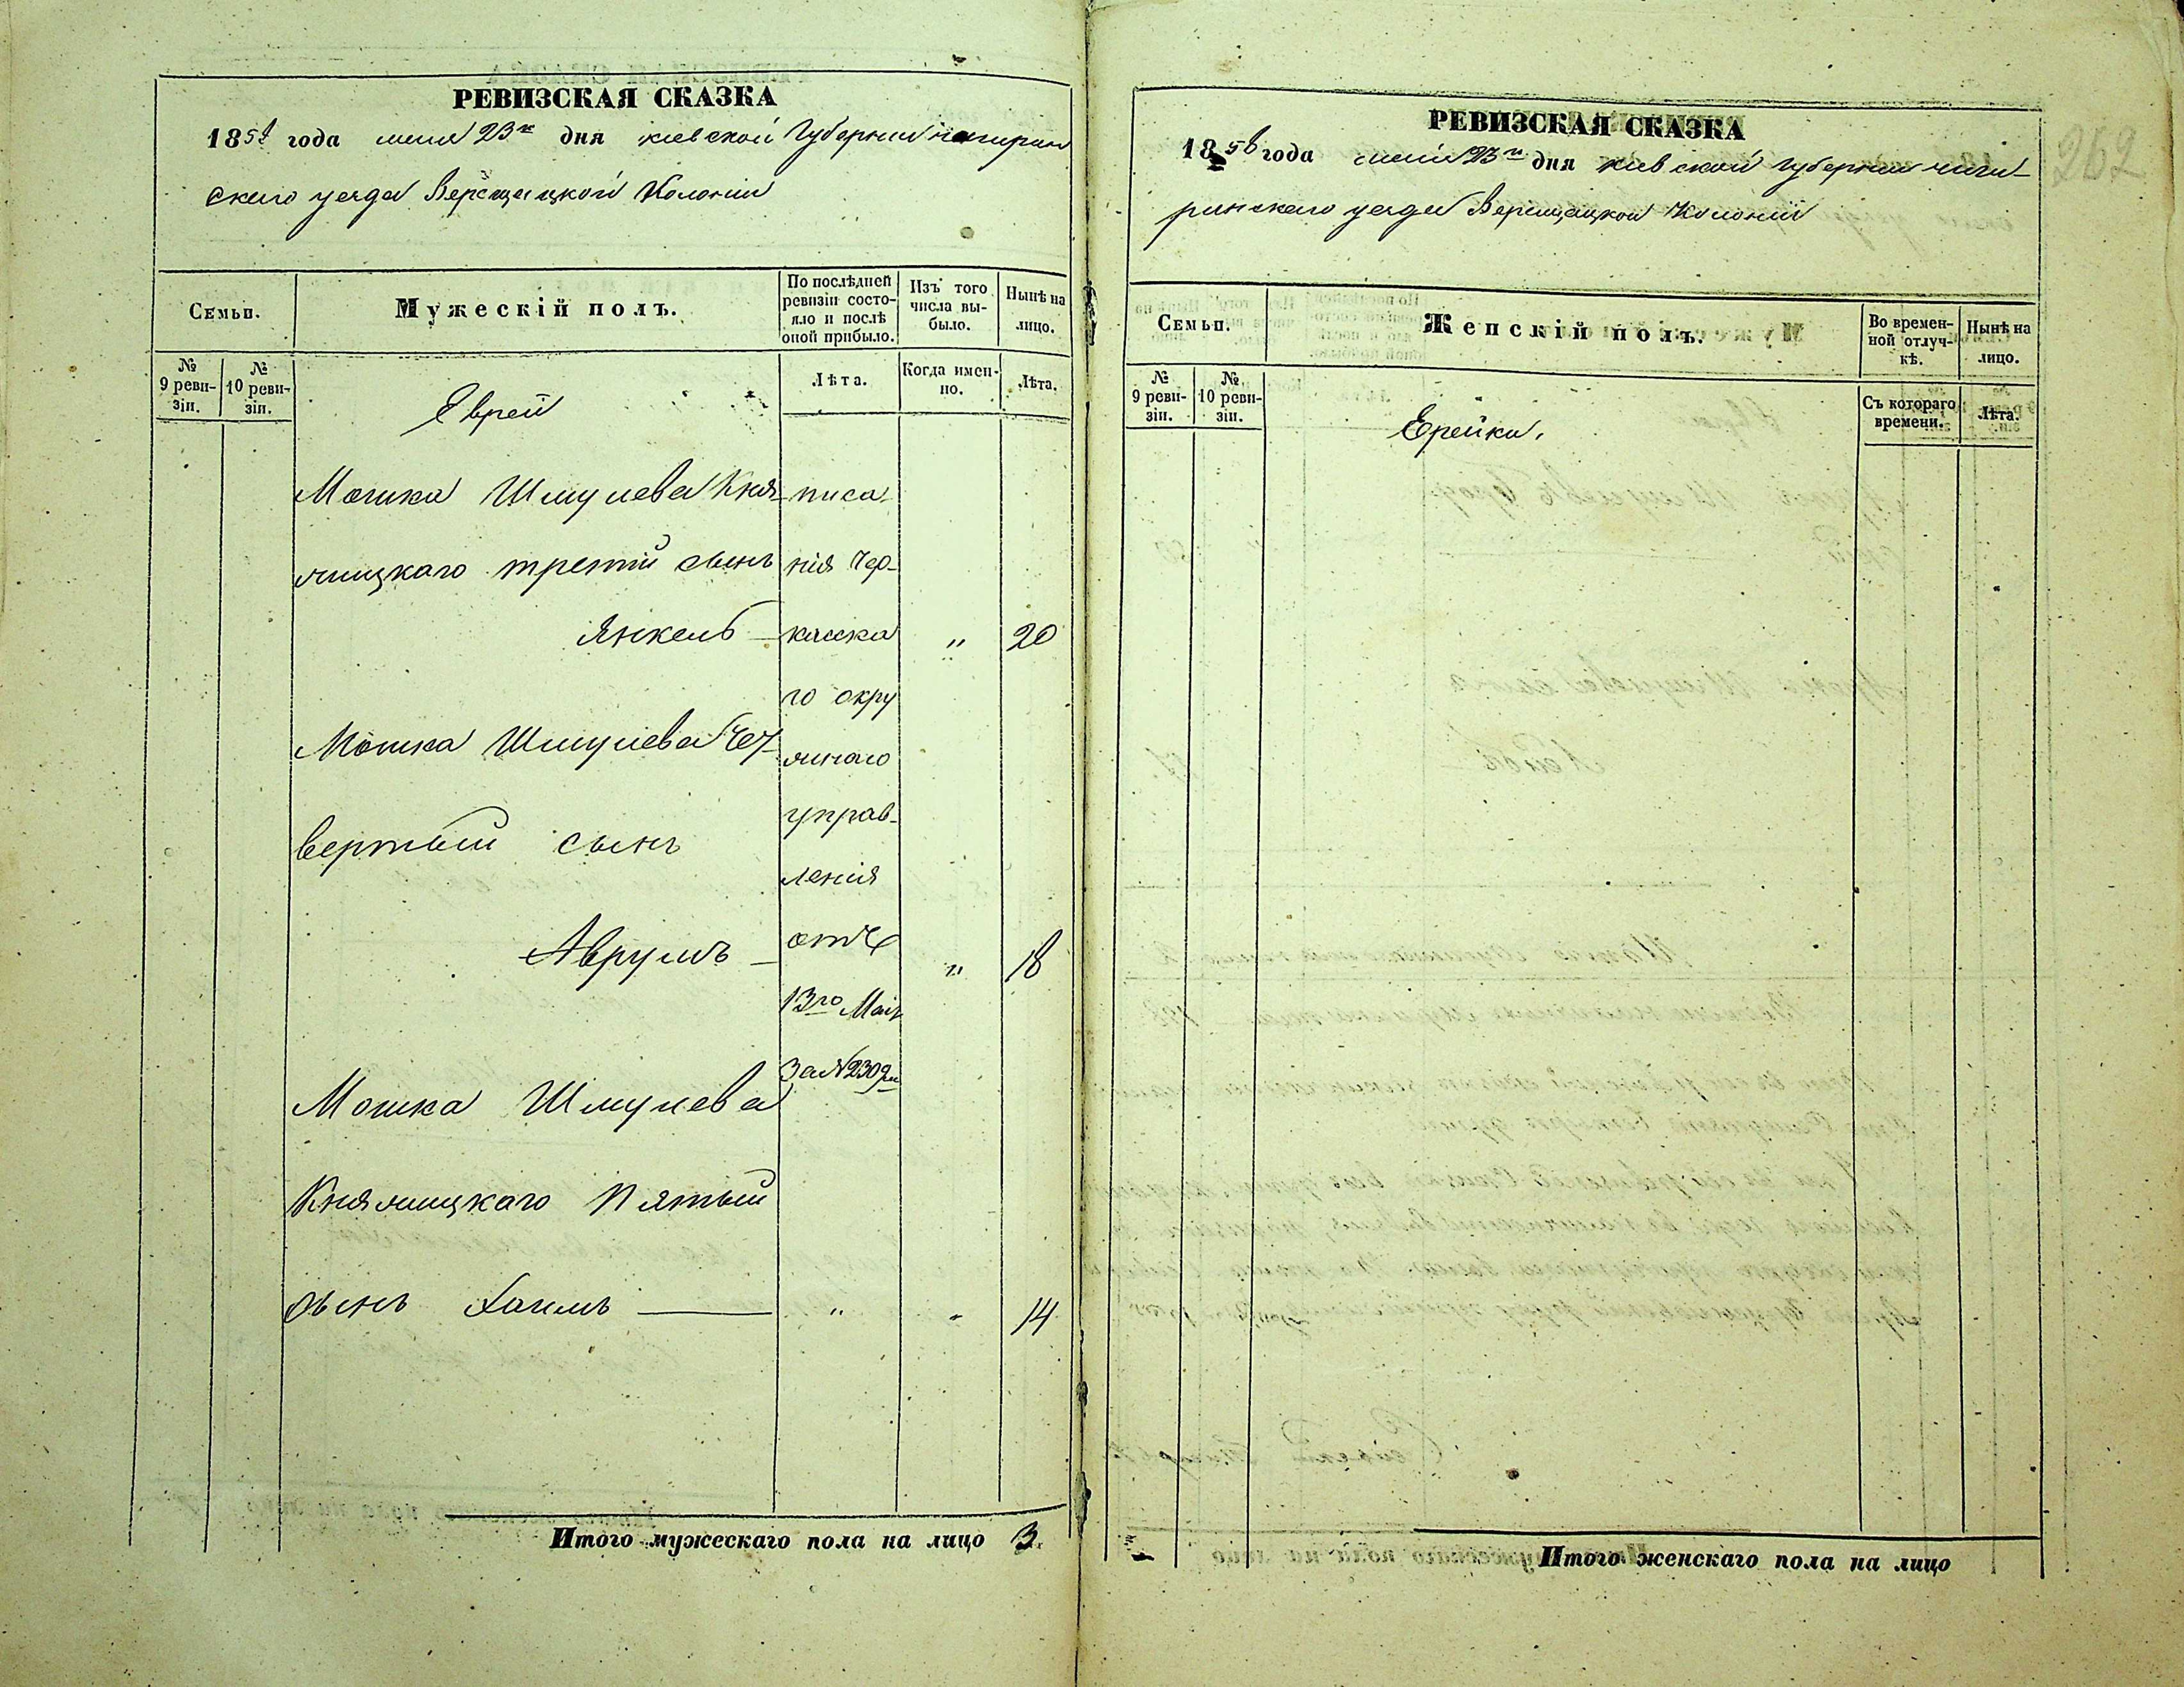 РЕВИЗСКАЯ СКАЗКА
1858 года маия 23го дня киевской Губернии чигирин
ского уезда Верещацкой Колонии
Семьи.
Мужескій полъ.
По послѣдней ревизіи состояло и послѣ оной прибыло.
Изъ того числа выбыло.
Нынѣ на лицо.
№ 9 ревизіи.
№ 10 ревизіи.
Лѣта.
Когда именно.
Лѣта.
Еврей
Мошка Шмулева Кня- писа-
жицкаго третий сынъ нія Чер-
Янкель — касска " 20
го окру
Мошка Шмулева Чет- жнаго
управ-
вертый сынъ
ленія
Аврумъ — отъ " 18
13го Маія
За № 2309м
Мошка Шмулева
Княжицкаго Пятый
сынъ Хаимъ — " " 14
Итого мужескаго пола на лицо 3.
262
РЕВИЗСКАЯ СКАЗКА
1858 года маия 23го дня киевской губернии чиги-
ринского уезда Верещацкой Колонии
Семьи.
Женскій полъ.
Во временной отлучкѣ.
Нынѣ на лицо.
№ 9 ревизіи.
№ 10 ревизіи.
Съ котораго времени.
Лѣта.
Ерейки.
Итого женскаго пола на лицо